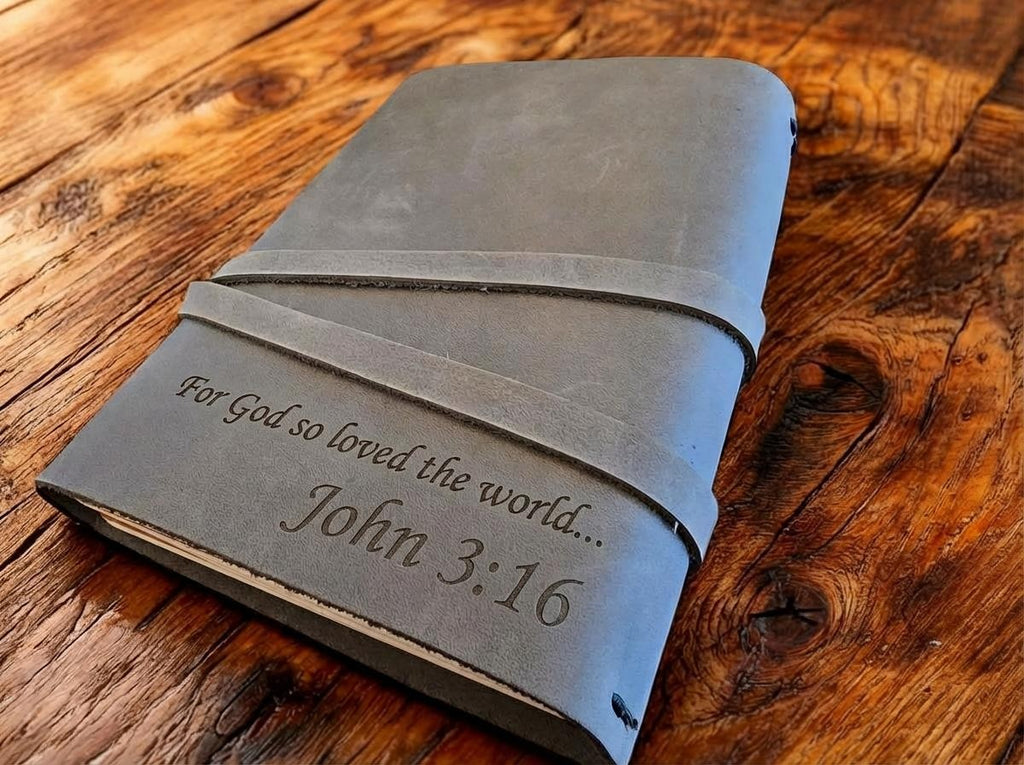 For God so loved the world...
John 3:16